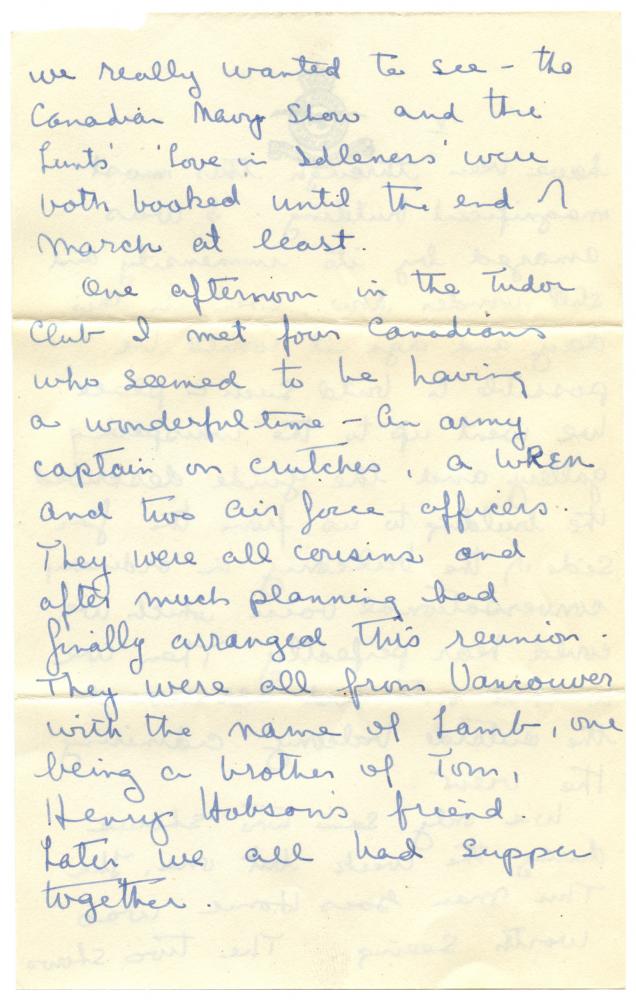 we really wanted to see – the
Canadian Navy Show and the
Lunts' 'Love in Idleness' were
both booked until the end of
March at least.
One afternoon in the Tudor
Club I met four Canadians
who seemed to be having
a wonderful time – an army
captain on crutches, a WREN
and two air force officers.
They were all cousins and
after much planning had
finally arranged this reunion.
They were all from Vancouver
with the name of Lamb, one
being a brother of Tom,
Henry Hobson's friend.
Later we all had supper
together.